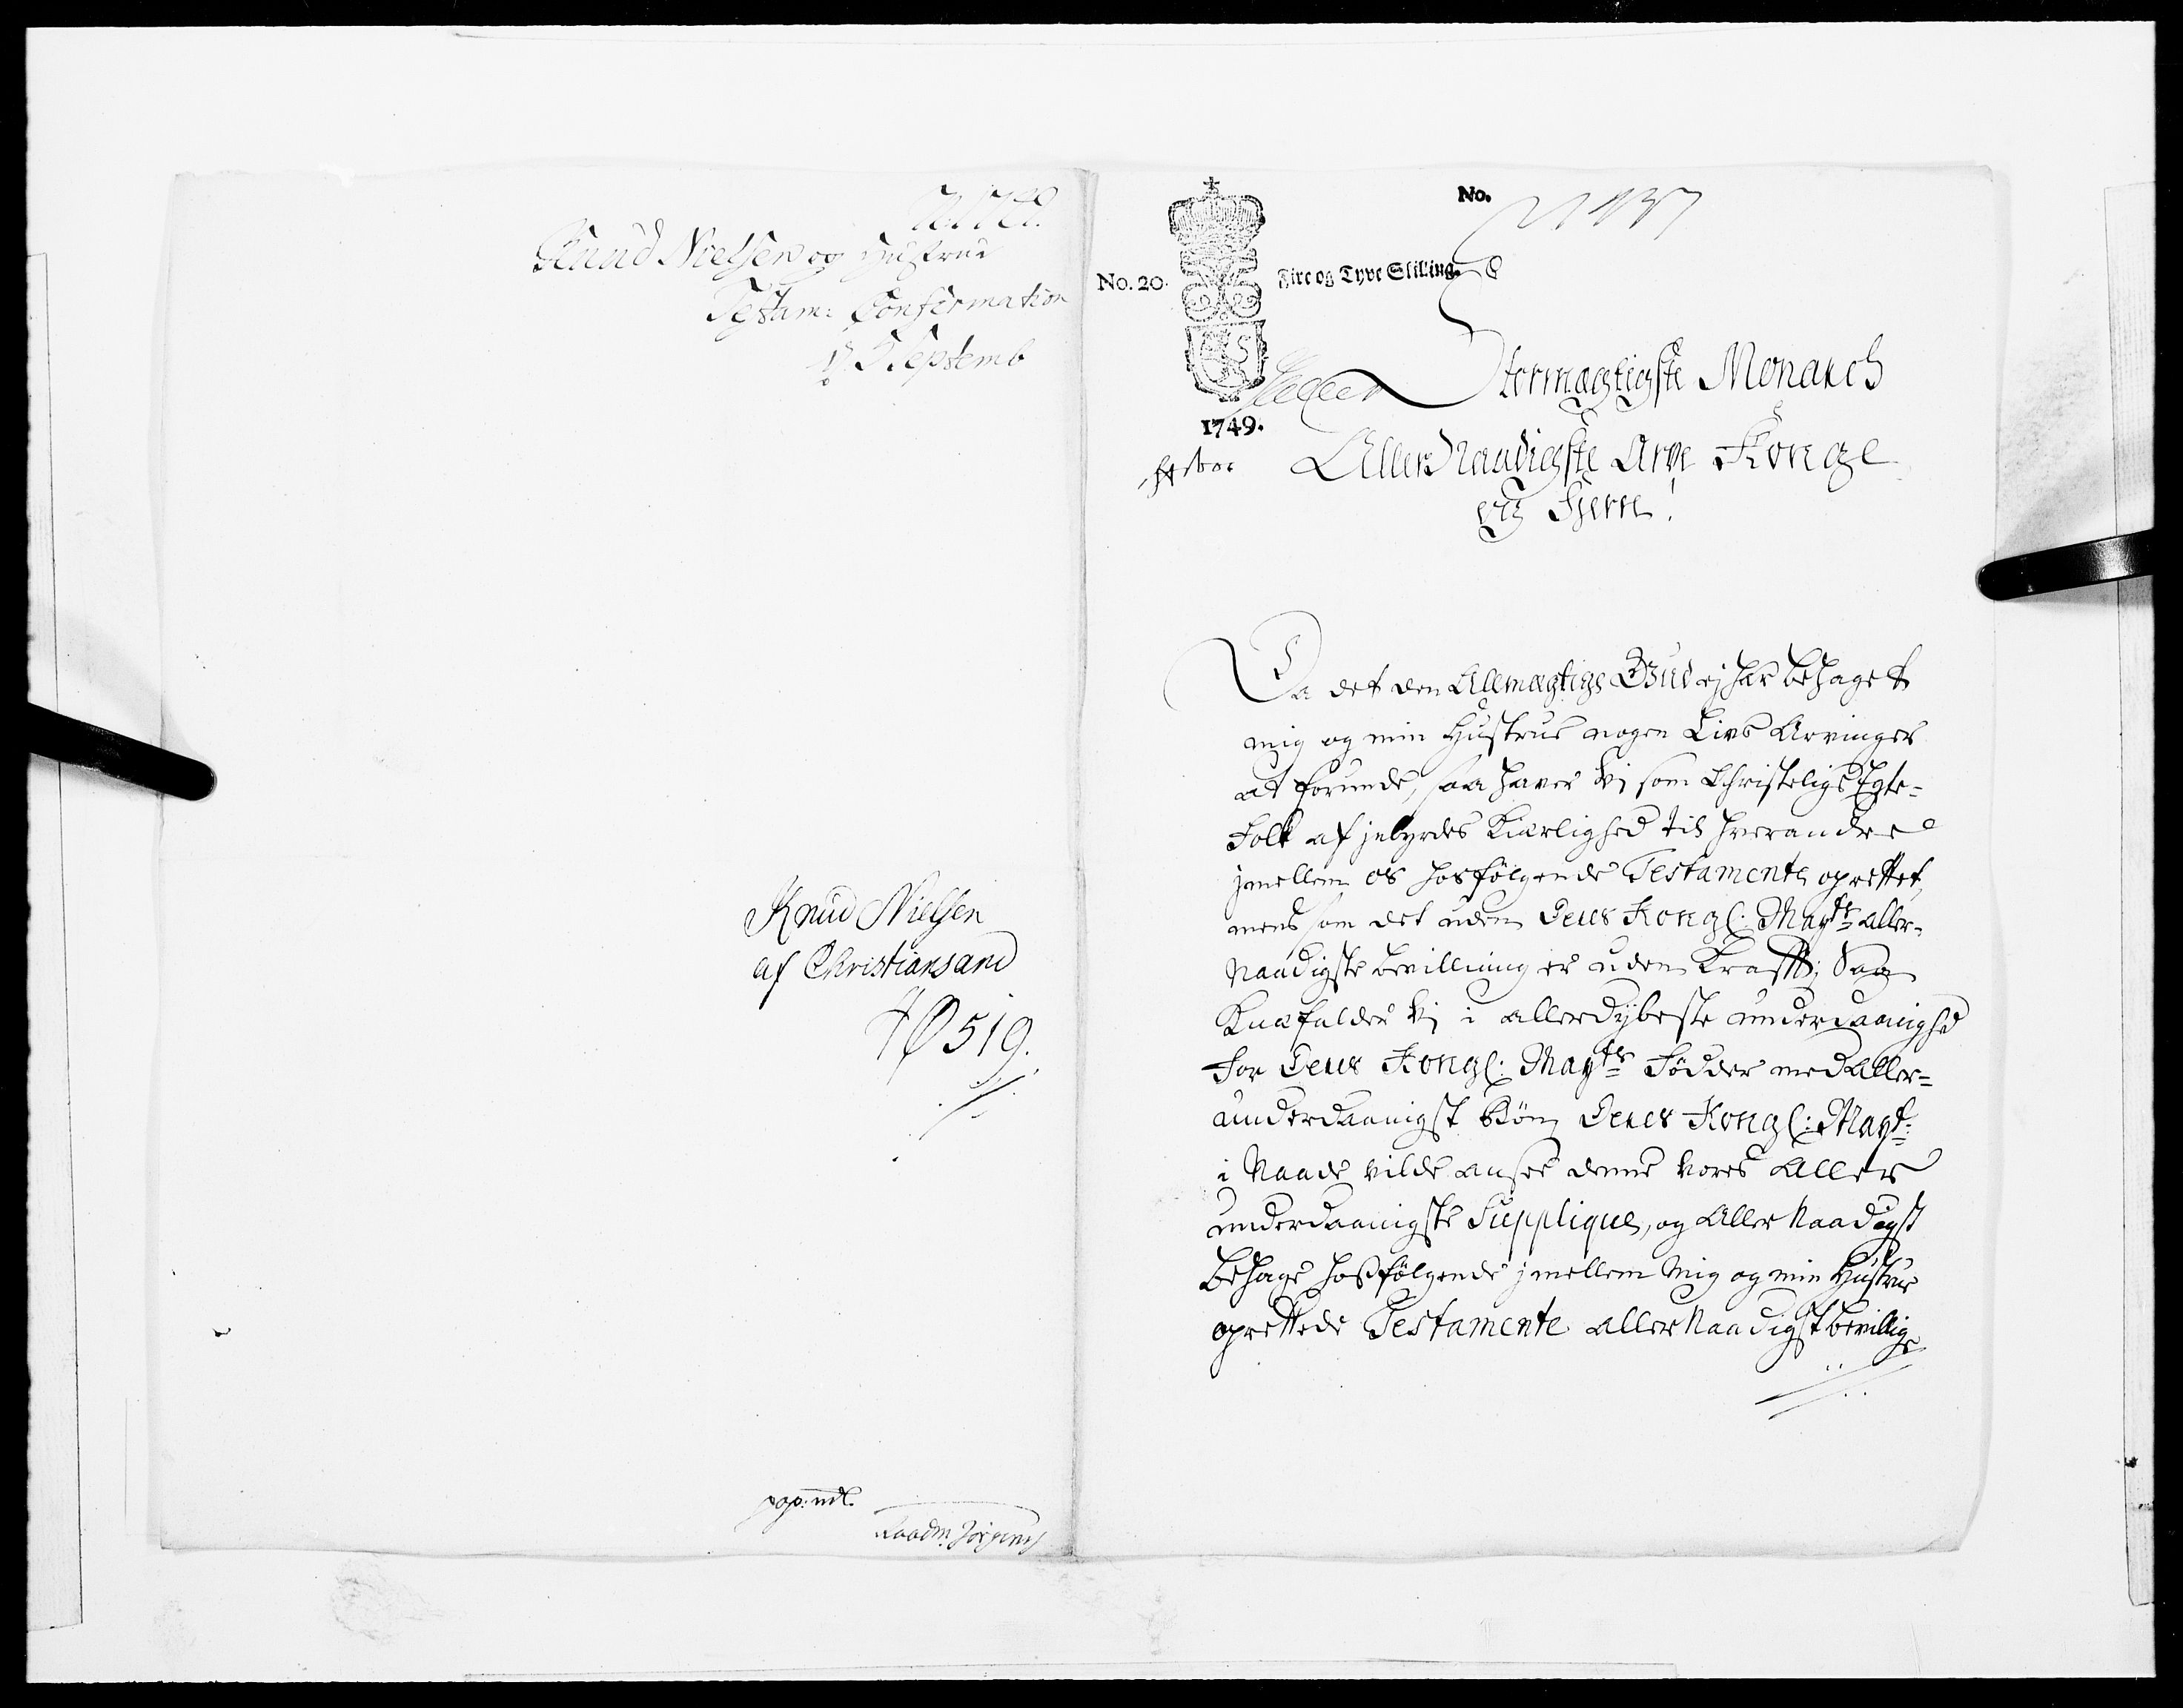 Knud Nielsen og Hustrue
Testam: Confirmation
5 Septemb
Knud Nielsen
af Christiansand
519.
No.
No. 20.
Fire og Tyve Skilling.
1749.
Stormægtigste Monarch
Aller Naadigste Arve Konge
og Herre!
Da det den Allmægtige Gud ej har behaget
mig og min Hustrue nogen Livs Arvinger
at forunde, saa haver Vj som Christelige Egte-
Folk af jnbyrdes Kiærlighed til hverandre
jmellem os hosfølgende Testamente oprettet,
mens som det uden Deres Kongl: Mayts Aller-
Naadigste bevillning er uden Krafft; Saa
Knæfalder Vj i allerdybeste underdaanighed
For Deres Kongl: Mayts Fødder med Aller-
underdaanigst Bøn, Deres Kongl: Mayt:
i Naade vilde ansee denne vores Aller
underdaanigste Supplique, og Aller Naadigst
behage hosfølgende jmellem Mig og min Hustrue
oprettede Testamente aller Naadigst bevillige